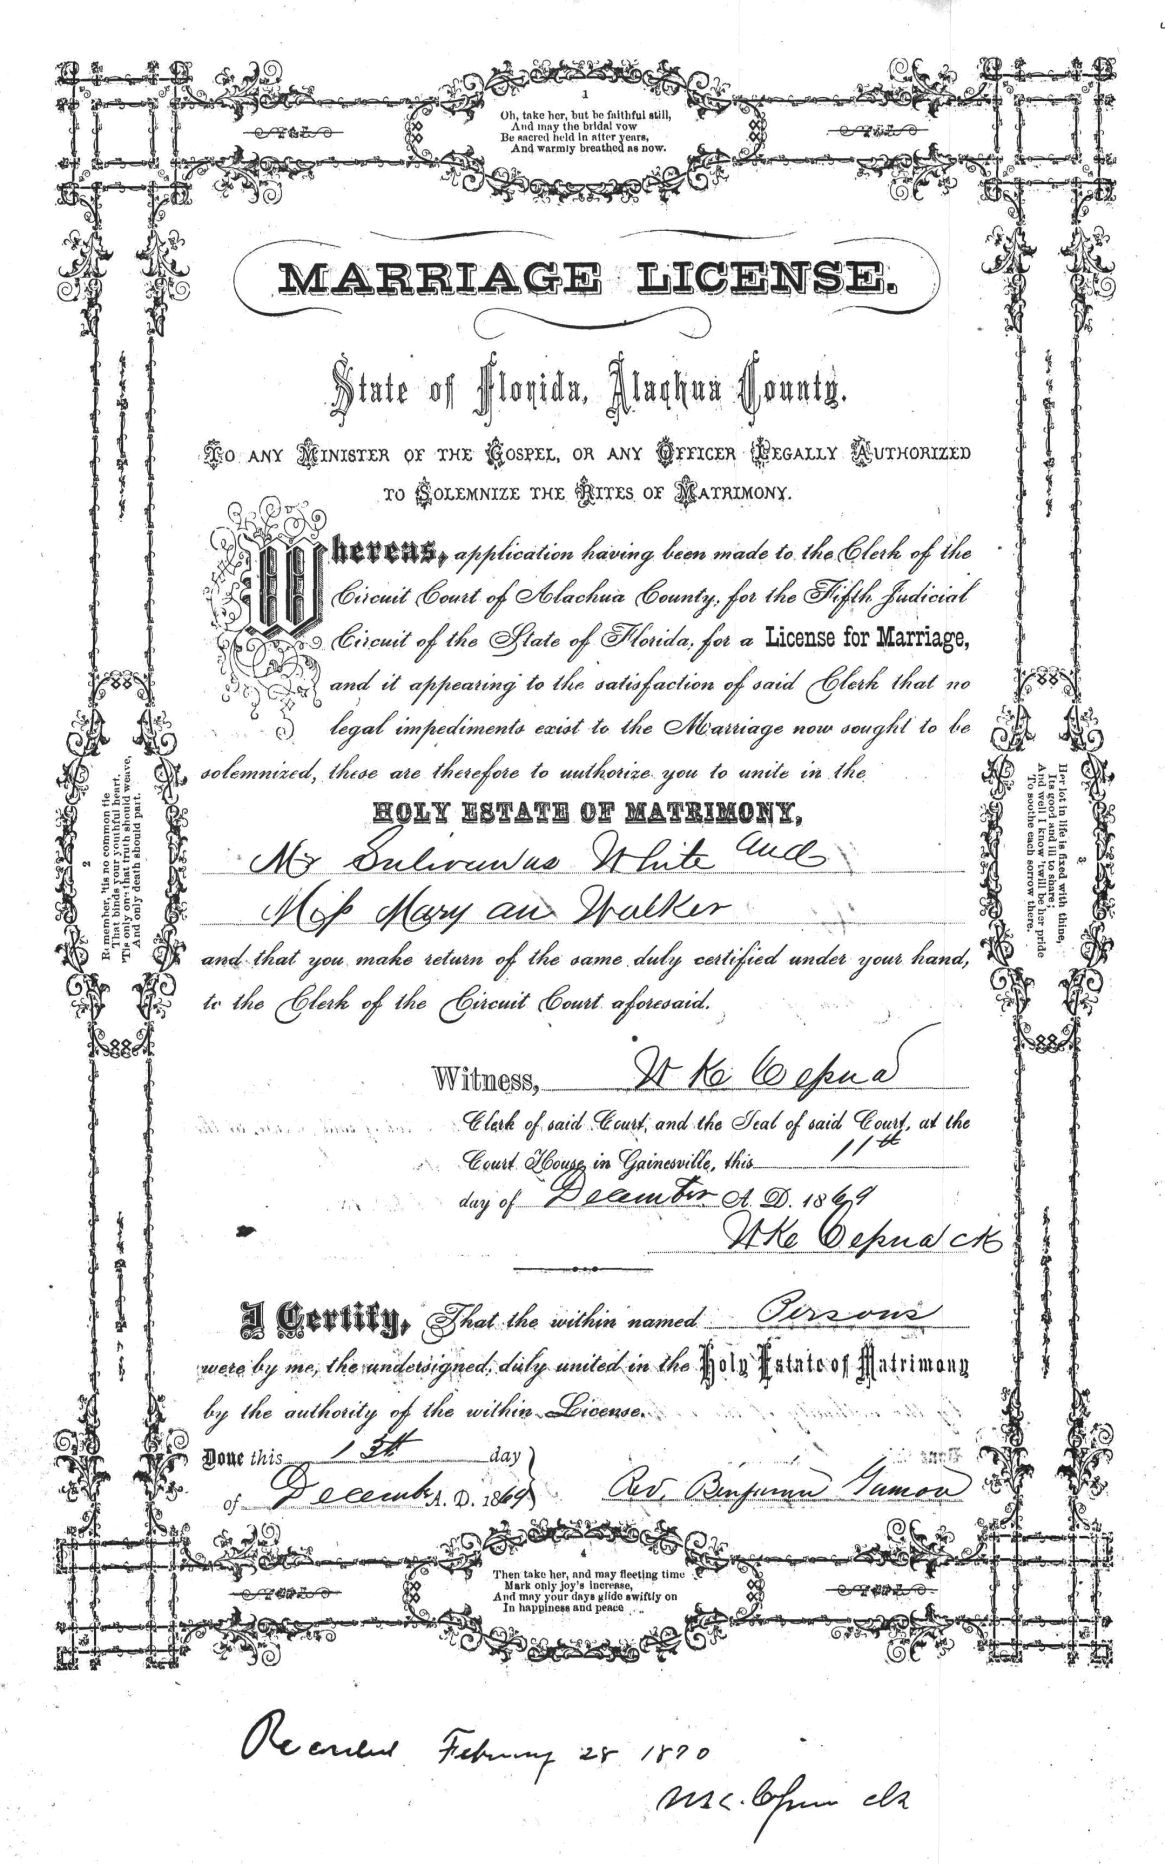 1
Oh, take her, but be faithful still,
And may the bridal vow
Be sacred held in after years,
And warmly breathed as now.
MARRIAGE LICENSE.
State of Florida, Alachua County.
To any Minister of the Gospel, or any Officer Legally Authorized
to Solemnize the Rites of Matrimony.
Whereas, application having been made to the Clerk of the
Circuit Court of Alachua County, for the Fifth Judicial
Circuit of the State of Florida, for a License for Marriage,
and it appearing to the satisfaction of said Clerk that no
legal impediments exist to the Marriage now sought to be
solemnized, these are therefore to authorize you to unite in the
HOLY ESTATE OF MATRIMONY,
Mr White and
Miss Mary an Walker
and that you make return of the same duly certified under your hand,
to the Clerk of the Circuit Court aforesaid.
Witness, W K Cessna
Clerk of said Court, and the Seal of said Court, at the
Court House in Gainesville, this 11th
day of December A. D. 1869
W K Cessna clk
I Certify, That the within named Persons
were by me, the undersigned, duly united in the Holy Estate of Matrimony
by the authority of the within License.
Done this 13th day
of December A. D. 1869
Rev. Benjamin
2
Remember, 'tis no common tie
That binds your youthful heart,
'Tis one only that truth should weave,
And only death should part.
3
Her lot in life is fixed with thine,
Its good and ill to share;
And well I know 'twill be her pride
To soothe each sorrow there.
4
Then take her, and may fleeting time
Mark only joy's increase,
And may your days glide swiftly on
In happiness and peace
Recorded February 28 1870
W K. Cessna clk